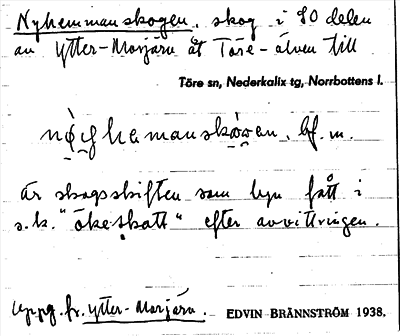 Nyhemmanskogen, skog i SO delen
av Ytter-Morjärv åt Töre-älven till
Töre sn, Nederkalix tg, Norrbottens l.
hemanskowen, bf. m.
är skogsskiften som byn fått i
s.k. "ökeskatt" efter avvittringen.
Uppg. fr. Ytter-Morjärv.
EDVIN BRÄNNSTRÖM 1938.